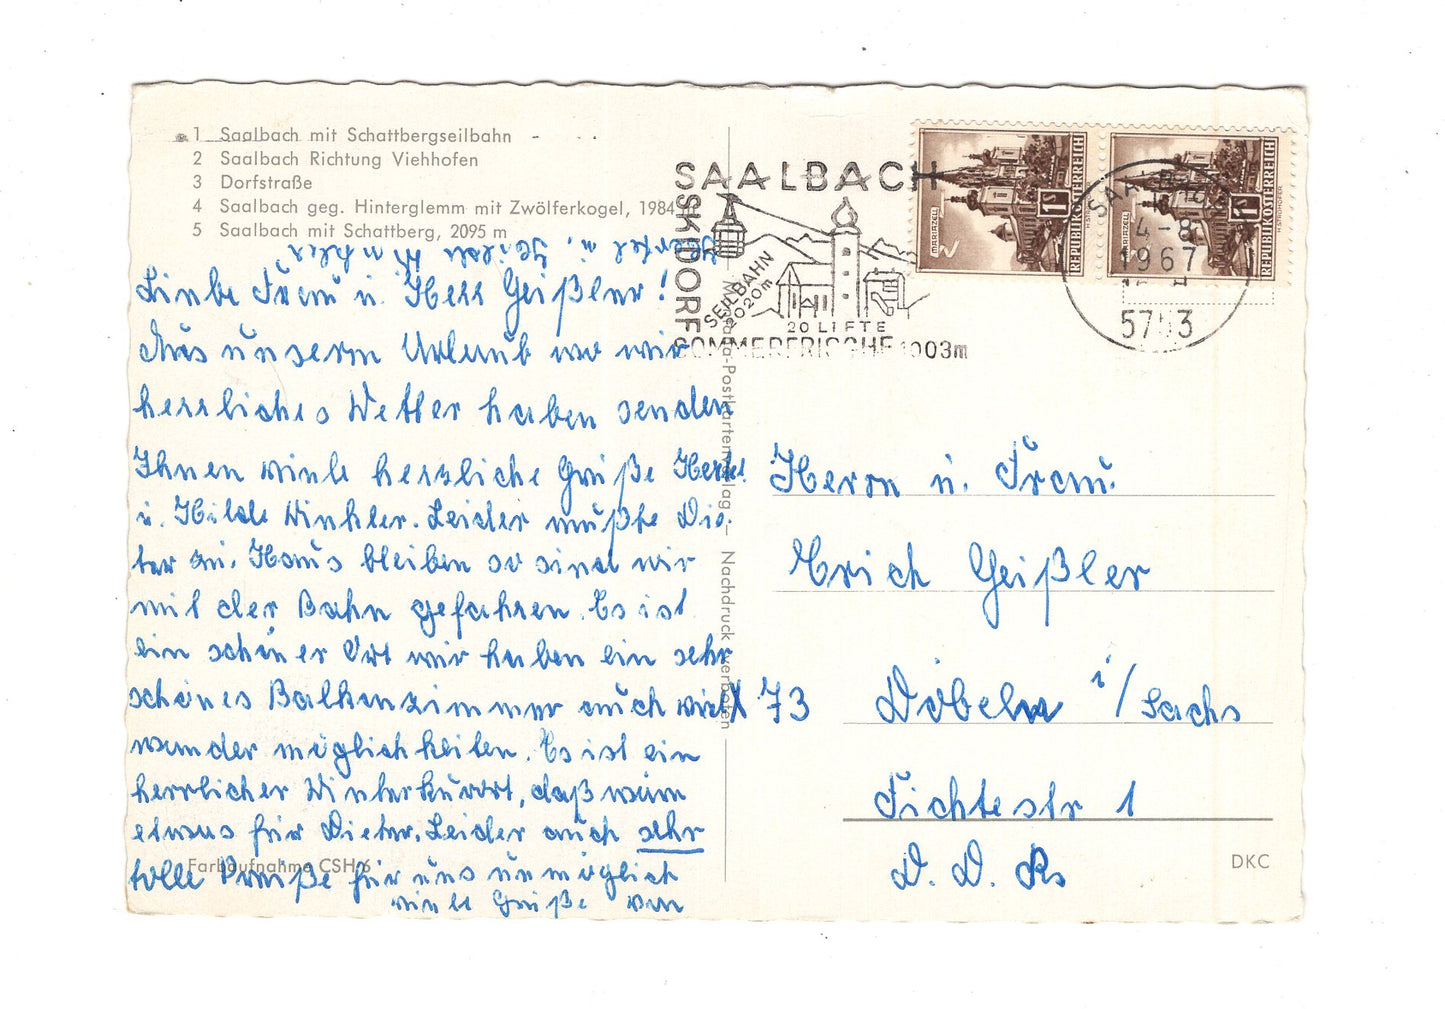 1 Saalbach mit Schattbergseilbahn
2 Saalbach Richtung Viehhofen
3 Dorfstraße
4 Saalbach geg. Hinterglemm mit Zwölferkogel, 1984
5 Saalbach mit Schattberg, 2095 m
Liebe Frau u. Herr Geißler!
Aus unserm Urlaub wo wir
herrliches Wetter haben senden
Ihnen viele herzliche Grüße
u. Hilde Winkler. Leider mußte Die-
ter zu Haus bleiben so sind wir
mit der Bahn gefahren. Es ist
ein schöner Ort wir haben ein sehr
schönes Balkonzimmer auch viel
wander möglichkeiten. Es ist ein
herrlicher Winterkurort, daß wäre
etwas für Dieter. Leider auch sehr
tolle Preiße für uns unmöglich
viele Grüße von
u. Winkler
SAALBACH
SKIDORF
SEILBAHN
2020m
20 LIFTE
SOMMERFRISCHE 1003m
MARIAZELL
1S
REPUBLIK ÖSTERREICH
H. STROHOFER
MARIAZELL
1S
REPUBLIK ÖSTERREICH
H. STROHOFER
SAALBACH
4-8
1967
5753
-Postkartenverlag – Nachdruck verboten
Herrn u. Frau
Erich Geißler
X 73 Döbeln i/Sachs
Fichtestr 1
D. D. R.
Farbaufnahme CSH/6
DKC